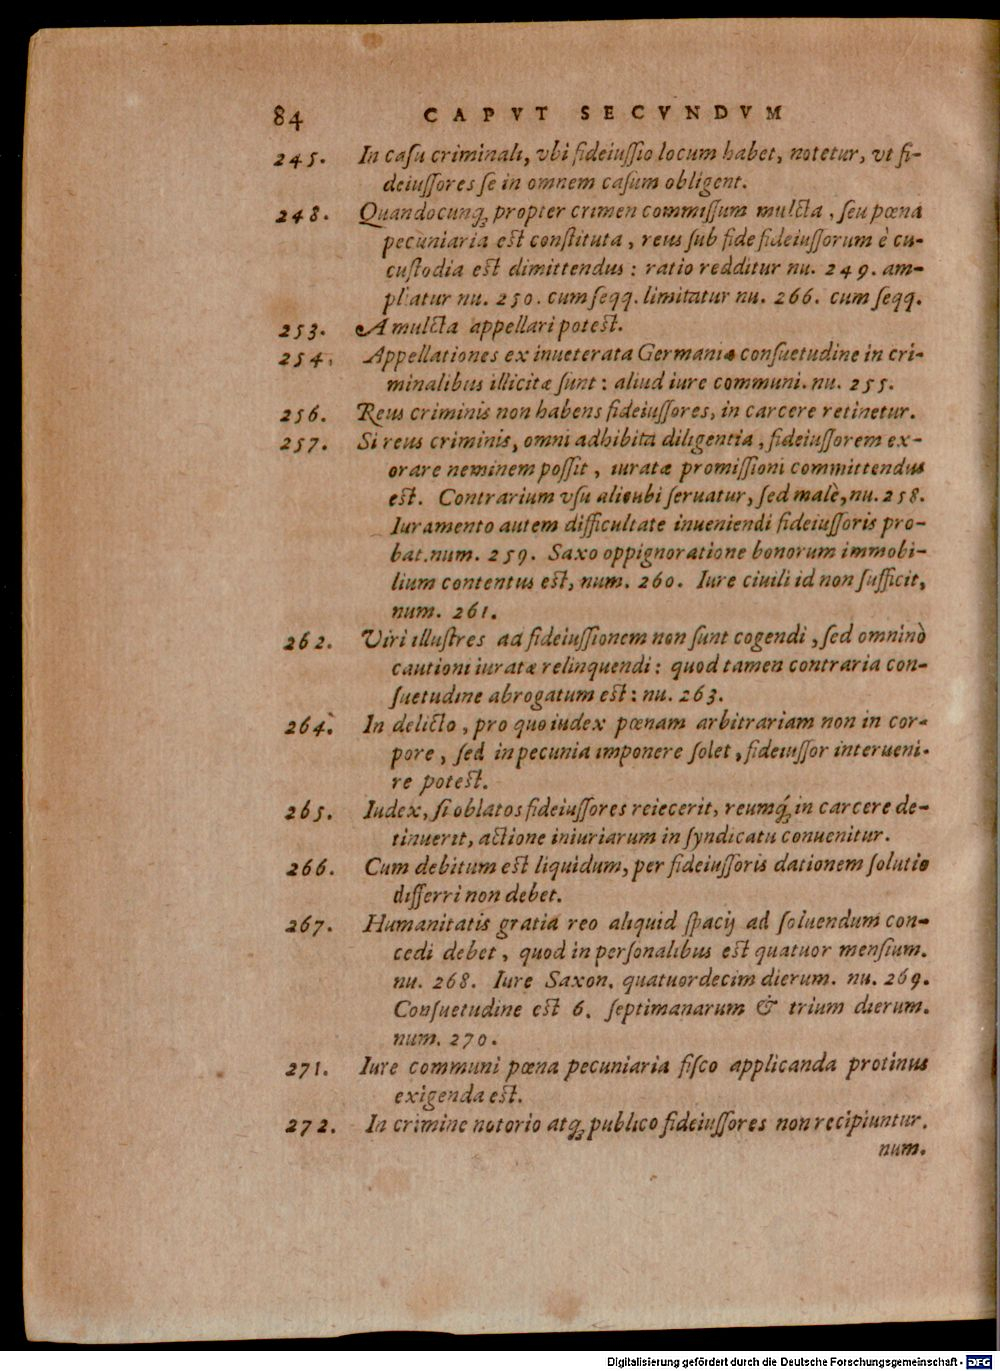 84 CAPVT SECVNDVM
245. In caſu criminali, vbi fideiuſſio locum habet, notetur, vt fi-
deiuſſores ſe in omnem caſum obligent.
248. Quandocunq; propter crimen commiſſum mulcta, ſeu pœna
pecuniaria eſt conſtituta, reus ſub fide fideiuſſorum è cu-
cuſtodia eſt dimittendus: ratio redditur nu. 249. am-
pliatur nu. 250. cum ſeqq. limitatur nu. 266. cum ſeqq.
253. A mulcta appellari poteſt.
254. Appellationes ex inueterata Germaniæ conſuetudine in cri-
minalibus illicitæ ſunt: aliud iure communi. nu. 255.
256. Reus criminis non habens fideiuſſores, in carcere retinetur.
257. Si reus criminis, omni adhibita diligentia, fideiuſſorem ex-
orare neminem poſſit, iuratæ promiſſioni committendus
eſt. Contrarium vſu alicubi ſeruatur, ſed malè, nu. 258.
Iuramento autem difficultate inueniendi fideiuſſoris pro-
bat. num. 259. Saxo oppignoratione bonorum immobi-
lium contentus eſt, num. 260. Iure ciuili id non ſufficit,
num. 261.
262. Viri illuſtres ad fideiuſſionem non ſunt cogendi, ſed omninò
cautioni iuratæ relinquendi: quod tamen contraria con-
ſuetudine abrogatum eſt: nu. 263.
264. In delicto, pro quo iudex pœnam arbitrariam non in cor-
pore, ſed in pecunia imponere ſolet, fideiuſſor interueni-
re poteſt.
265. Iudex, ſi oblatos fideiuſſores reiecerit, reumq́; in carcere de-
tinuerit, actione iniuriarum in ſyndicatu conuenitur.
266. Cum debitum eſt liquidum, per fideiuſſoris dationem ſolutio
differri non debet.
267. Humanitatis gratia reo aliquid ſpacij ad ſoluendum con-
cedi debet, quod in perſonalibus eſt quatuor menſium.
nu. 268. Iure Saxon. quatuordecim dierum. nu. 269.
Conſuetudine eſt 6. ſeptimanarum & trium dierum.
num. 270.
271. Iure communi pœna pecuniaria fiſco applicanda protinus
exigenda eſt.
272. In crimine notorio atq; publico fideiuſſores non recipiuntur.
num.
Digitalisierung gefördert durch die Deutsche Forschungsgemeinschaft - DFG